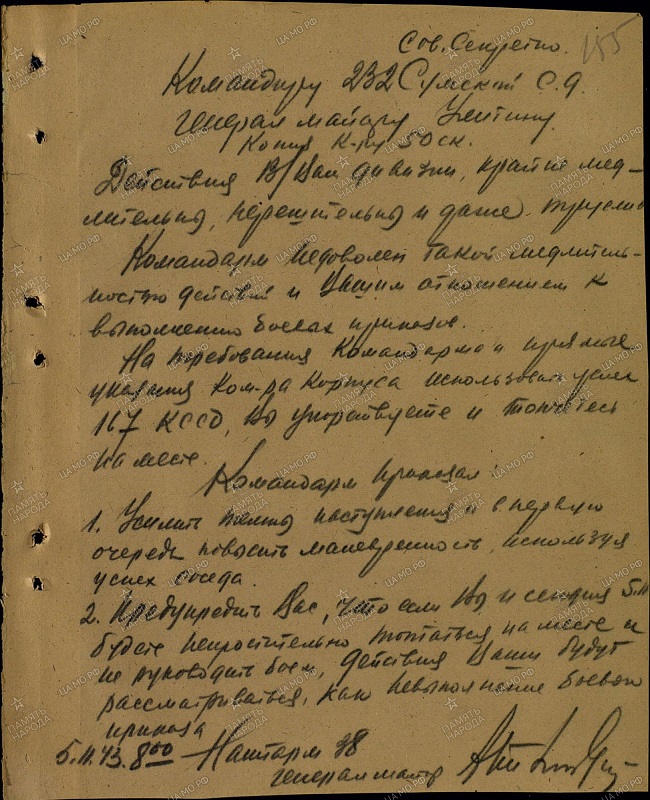 155
Сов. Секретно.
Командиру 232 Сумской с.д.
генерал майору Улитину.
Копия К-ру 50 ск.
Действия В/Вам дивизии, крайне мед-
лительно, нерешительно и даже трусливо
Командарм недоволен такой медлитель-
ностью действий и Вашим отношением к
выполнению боевых приказов.
На требования Командарма и прямые
указания Ком-ра Корпуса использовать успех
167 КССД, Вы упорствуете и топчетесь
на месте.
Командарм приказал:
1. Усилить темпы наступления и в первую
очередь повысить маневренность, используя
успех соседа.
2. Предупредить Вас, что если Вы и сегодня 5.11
будете непростительно топтаться на месте и
не руководить боем, действия Ваши будут
рассматриваться, как невыполнение боевого
приказа
5.11.43. 8 00 Наштарм 38
генерал майор